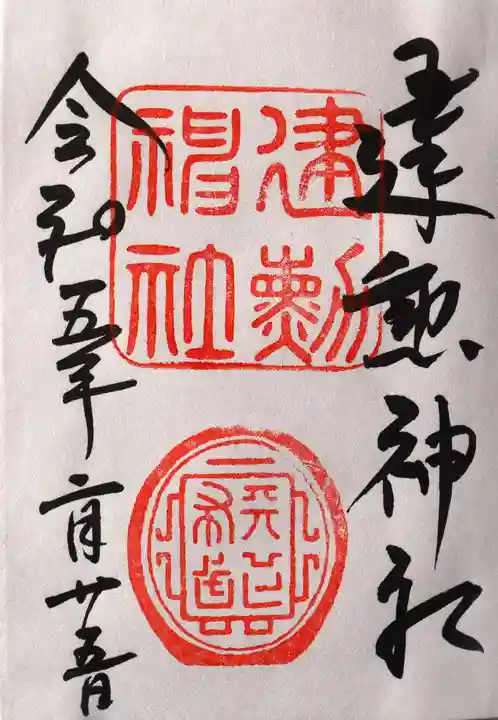 建勲神社
建勳
神社
令和五年二月廿五日